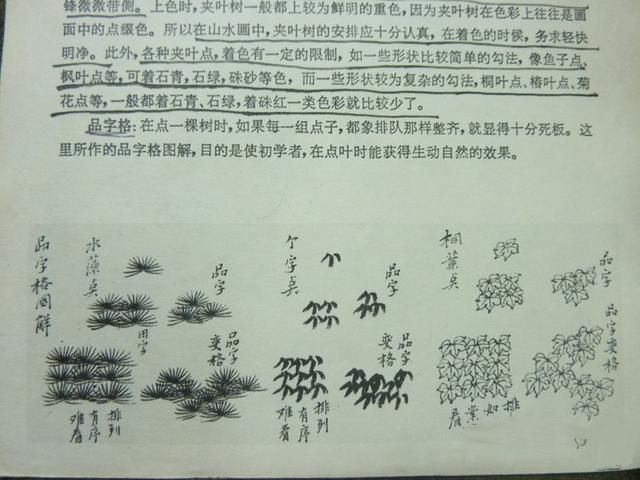 锋微微带侧。上色时，夹叶树一般都上较为鲜明的重色，因为夹叶树在色彩上往往是画
面中的点缀色。所以在山水画中，夹叶树的安排应十分认真，在着色的时候，务求轻快
明净。此外，各种夹叶点，着色有一定的限制，如一些形状比较简单的勾法，像鱼子点、
枫叶点等，可着石青，石绿，硃砂等色，而一些形状较为复杂的勾法，桐叶点、椿叶点、菊
花点等，一般都着石青、石绿，着硃红一类色彩就比较少了。
品字格：在点一棵树时，如果每一组点子，都象排队那样整齐，就显得十分死板。这
里所作的品字格图解，目的是使初学者，在点叶时能获得生动自然的效果。
品字格图解
水藻点
品字
用字
品字
变格
排列
有序
难看
个字点
品字
品字
变格
排列
有序
难看
桐葉点
品字
品字变格
排如葉看